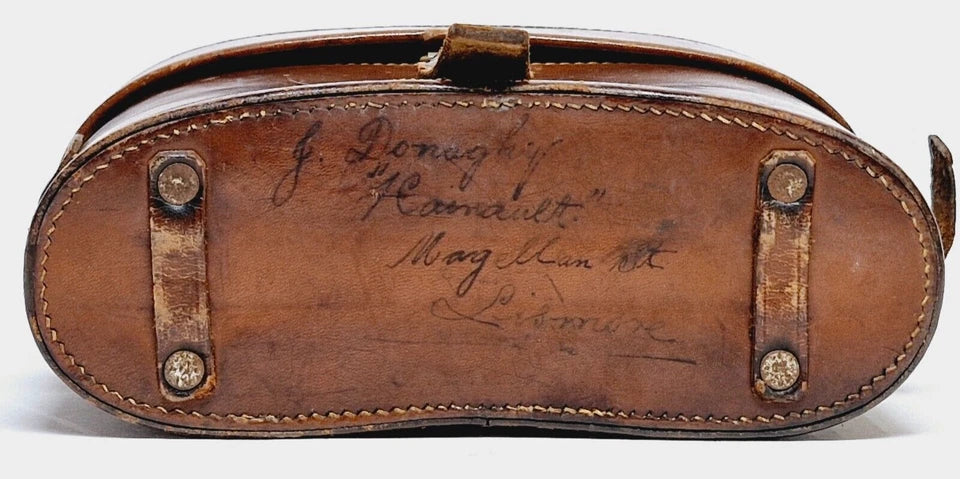 J. Donaghy
"Hainault."
Magellan St
Lismore